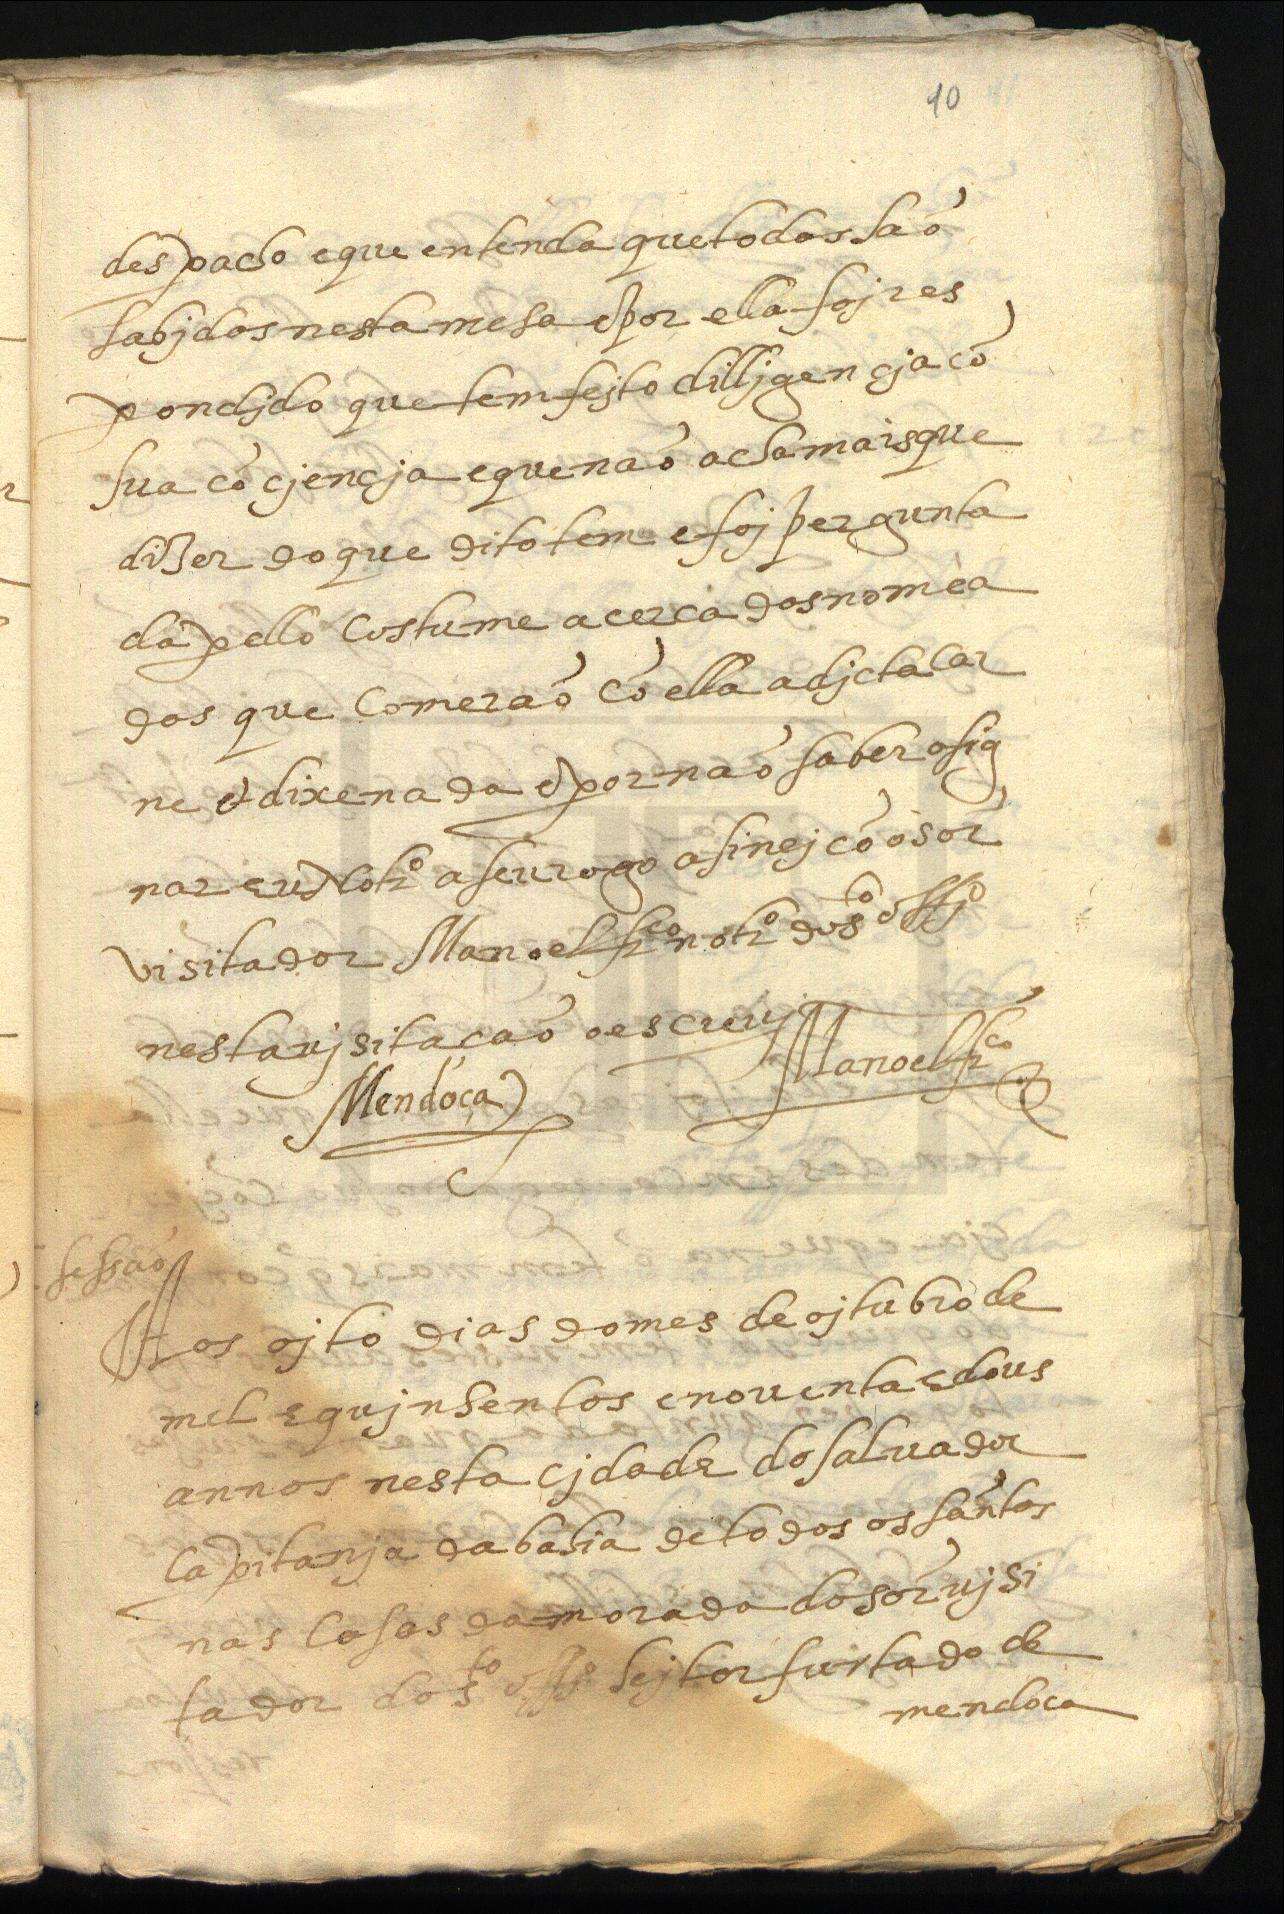 10
despacho e que entenda que todas saõ
sabjdas nesta mesa e por ella foj res
pondjdo que tem fejto dilljgençja cõ
sua cõcjençja e que naõ acha mais que
dizer do que dito tem e foj pergunta
da pello costume acerca dos nomea
dos que comeraõ cõ ella a djcta car
ne & dixe nada e por naõ saber asig
nar eu Notr.o a seu rogo asinej cõ o sõr
visitador Manoel fr.co notr.o do s.to off.o
nesta vjsitaçaõ o escrevj
Mendoça Manoel fr.co
sessaõ
Aos ojto dias do mes de ojtubro de
mel e qujnhentos e noventa e dous
annos nesta cjdade do saluador
capitanja da bahia de todos os santos
nas casas da morada do sõr vjsi
tador do s.to off.o hejtor furtado de
mendoça